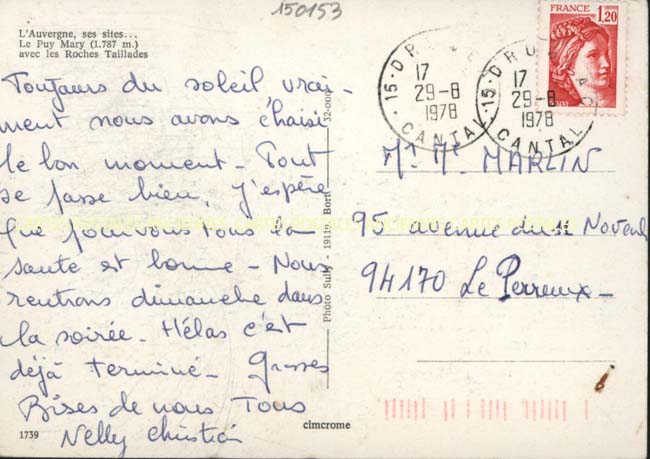 150153
L'Auvergne, ses sites...
Le Puy Mary (1.787 m.)
avec les Roches Taillades
FRANCE
1,20
15 - DRU
17
29-8
1978
CANTAL
15 - DRU
17
29-8
1978
CANTAL
Toujours du soleil, vrai-
ment nous avons choisi
le bon moment - Tout
se passe bien, j'espère
que pour vous tous la
santé est bonne - Nous
rentrons dimanche dans
la soirée - Hélas c'est
déjà terminé - Grosses
Bises de nous Tous
Nelly Christian
Mr Me MARLIN
95 avenue du 11 Novem
94170 Le Perreux -
Photo Sully - 19110 Bort
cimcrome
1739